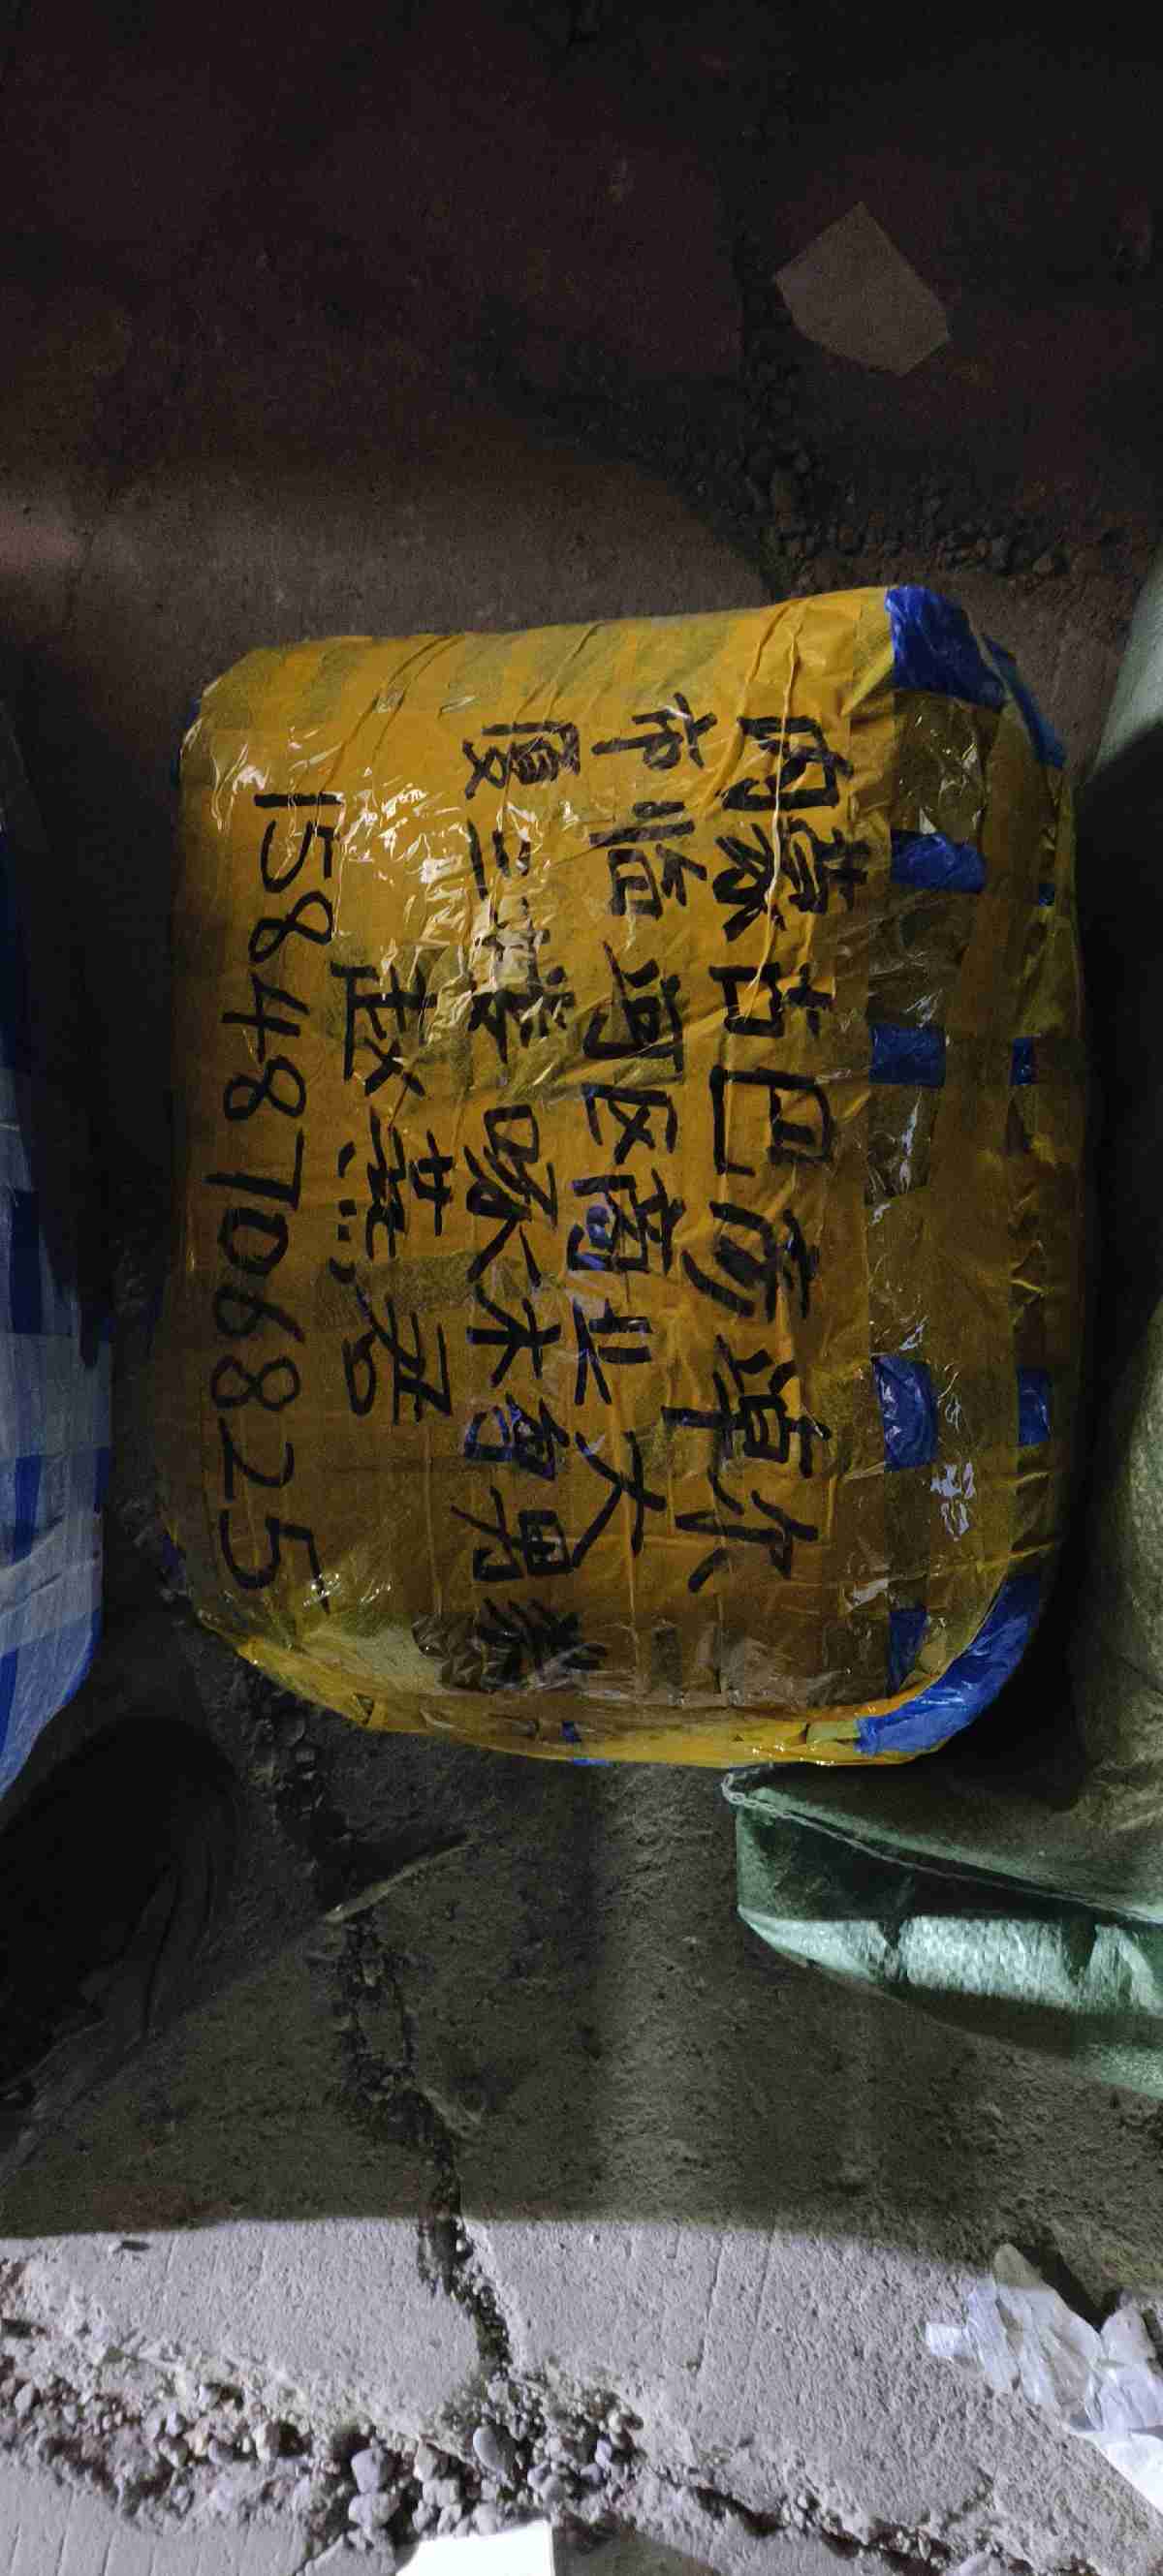 内蒙古巴彦淖尔
市临河区商业大
厦三楼哆一木勻男裤
赵燕君
15848706825